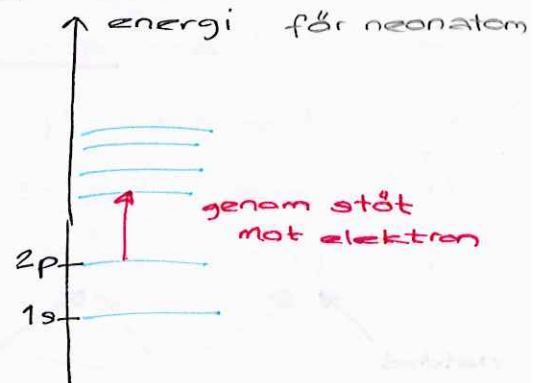 energi för neonatom
genom stöt
mot elektron
2p
1s